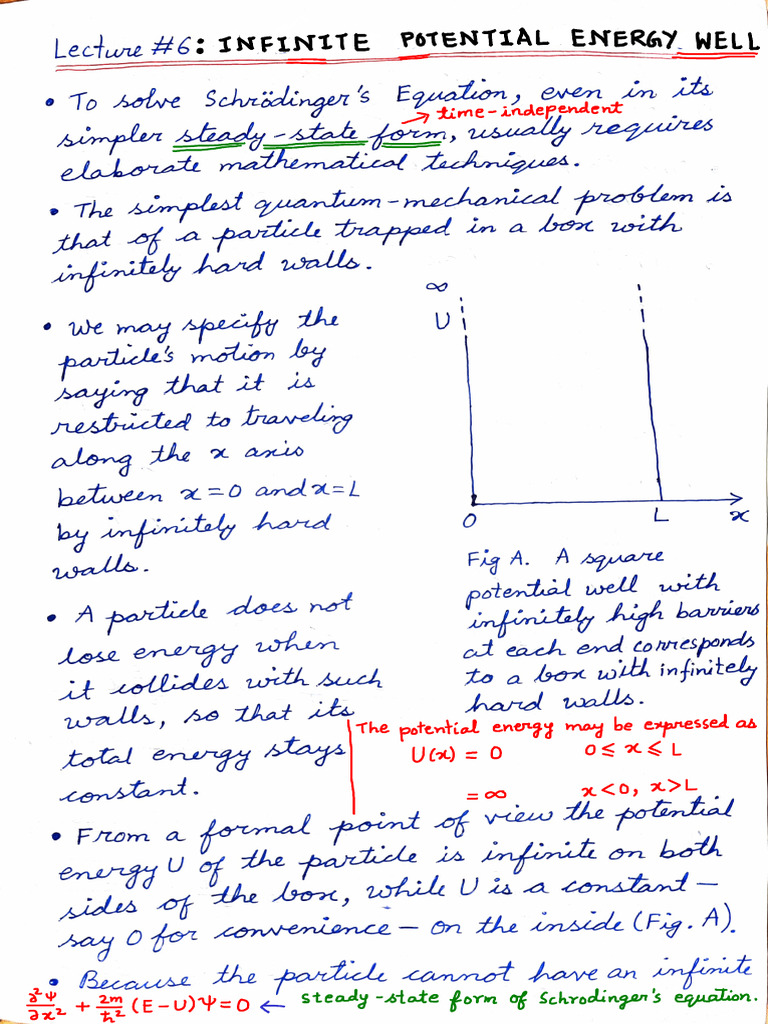 Lecture #6: INFINITE POTENTIAL ENERGY WELL
• To solve Schrödinger's Equation, even in its
→ time-independent
simpler steady-state form, usually requires
elaborate mathematical techniques.
• The simplest quantum-mechanical problem is
that of a particle trapped in a box with
infinitely hard walls.
• We may specify the
particle's motion by
saying that it is
restricted to traveling
along the x axis
between x=0 and x=L
by infinitely hard
walls.
∞
U
0 L x
Fig A. A square
potential well with
infinitely high barriers
at each end corresponds
to a box with infinitely
hard walls.
• A particle does not
lose energy when
it collides with such
walls, so that its
total energy stays
constant.
The potential energy may be expressed as
U(x) = 0 0 ≤ x ≤ L
= ∞ x<0, x>L
• From a formal point of view the potential
energy U of the particle is infinite on both
sides of the box, while U is a constant —
say 0 for convenience — on the inside (Fig. A).
• Because the particle cannot have an infinite
∂²Ψ/∂x² + 2m/ħ² (E-U)Ψ=0 ← steady-state form of Schrodinger's equation.